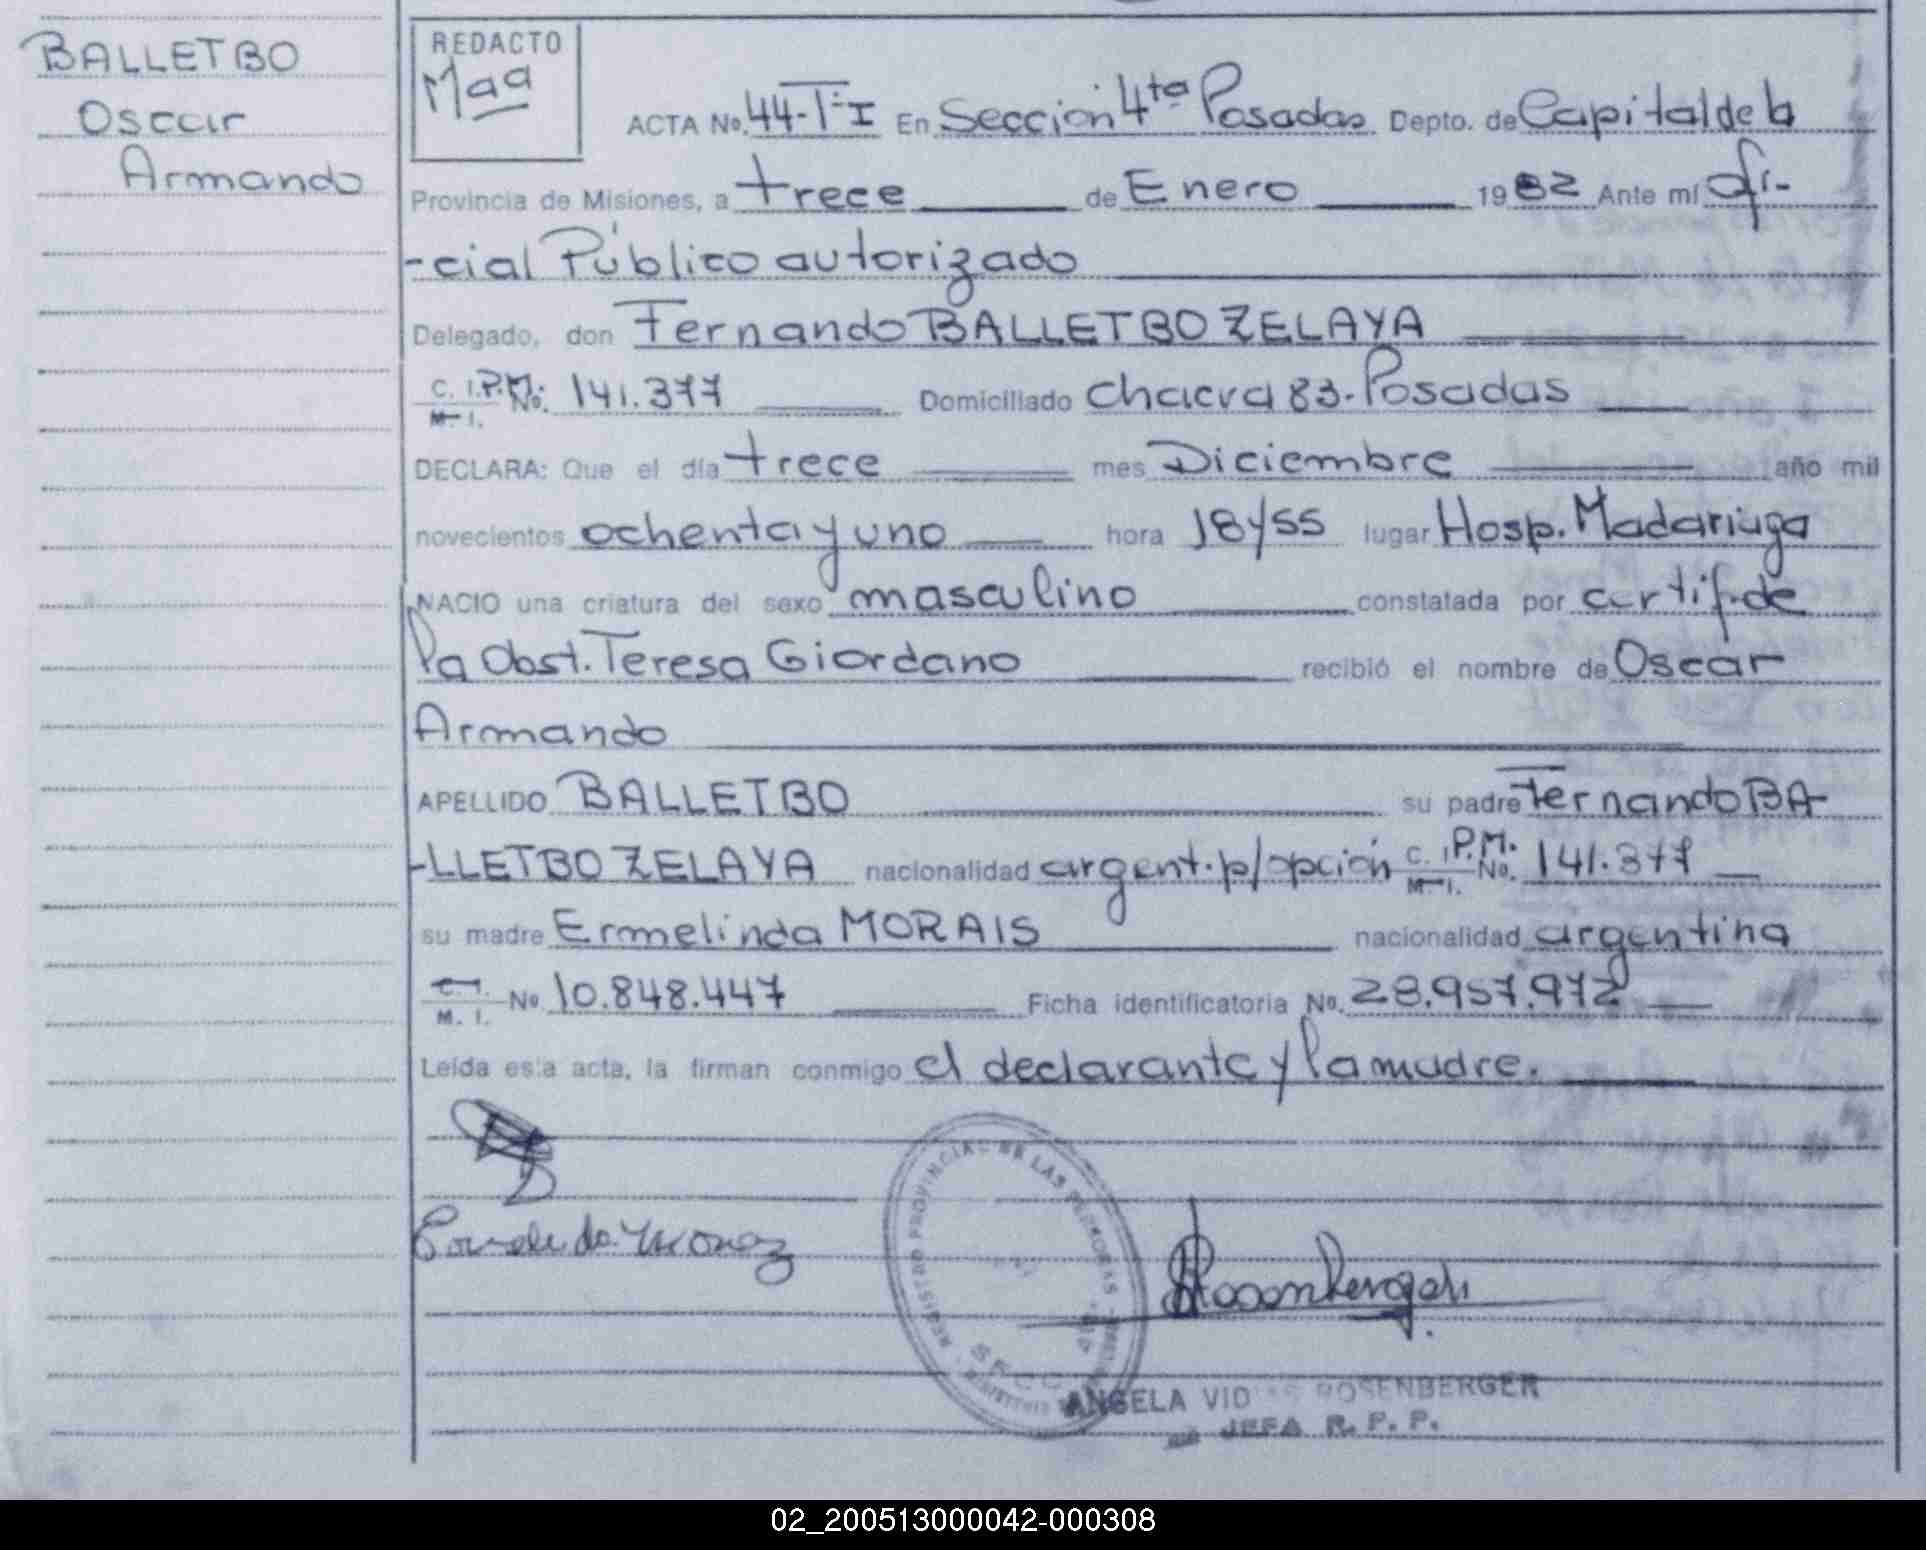 BALLETBO
Oscar
Armando
REDACTO
Maa
ACTA No. 44-T-I En Sección 4ta Posadas Depto. de Capital de la
Provincia de Misiones, a trece de Enero 1982 Ante mí Ofi-
-cial Público autorizado
Delegado, don Fernando BALLETBO ZELAYA
C. I.P.M. No. 141.377 Domiciliado Chacra 83.Posadas
M. I.
DECLARA: Que el día trece mes Diciembre año mil
novecientos ochenta y uno hora 18y55 lugar Hosp. Madariaga
NACIO una criatura del sexo masculino constatada por certif. de
la Obst. Teresa Giordano recibió el nombre de Oscar
Armando
APELLIDO BALLETBO su padre Fernando BA-
-LLETBO ZELAYA nacionalidad argent. p/opción C. I.P.M. No. 141.377
M. I.
su madre Ermelinda MORAIS nacionalidad argentina
C. I. No. 10.848.447 Ficha identificatoria No. 28.957.972
M. I.
Leída esta acta, la firman conmigo el declarante y la madre.
REGISTRO PROVINCIAL DE LAS PERSONAS
ANGELA VID ROSENBERGER
JEFA R. P. P.
02_200513000042-000308